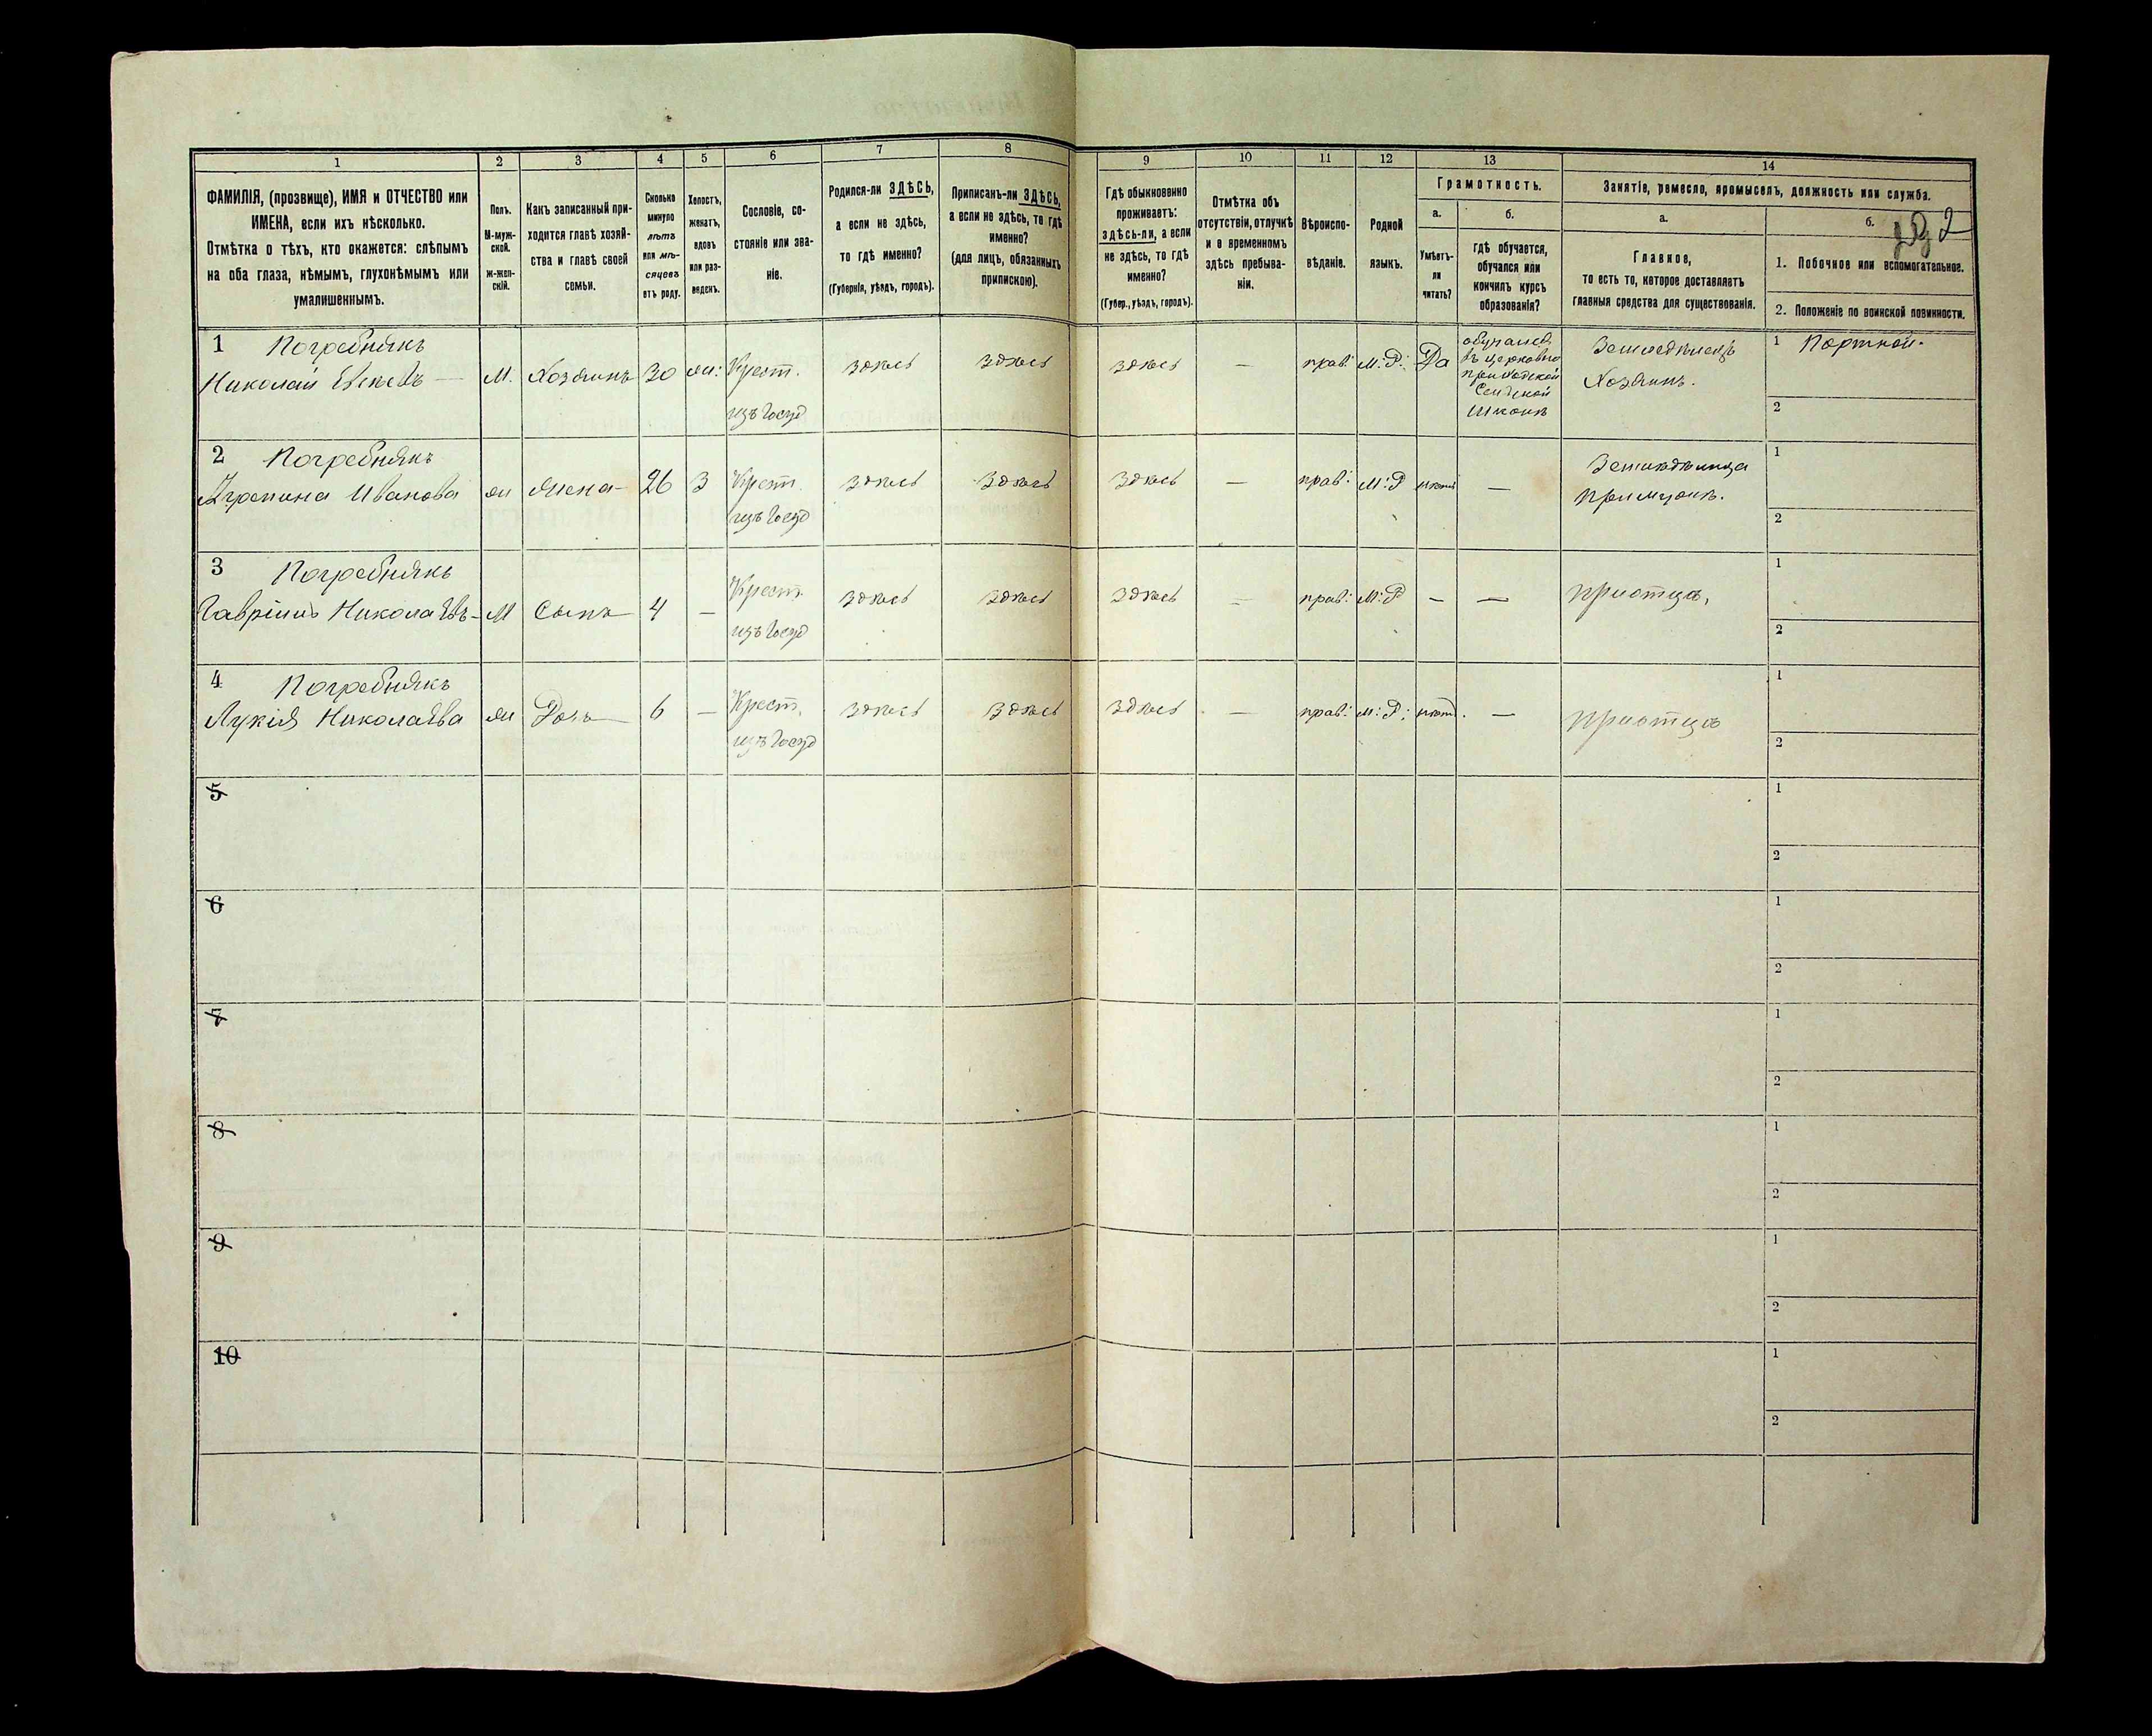 1
2
3
4
5
6
7
8
9
10
11
12
13
14
ФАМИЛІЯ, (прозвище), ИМЯ и ОТЧЕСТВО или
ИМЕНА, если ихъ нѣсколько.
Отмѣтка о тѣхъ, кто окажется: слѣпымъ
на оба глаза, нѣмымъ, глухонѣмымъ или
умалишеннымъ.
Полъ.
М-муж-
ской.
ж-жен-
скій.
Какъ записанный при-
ходится главѣ хозяй-
ства и главѣ своей
семьи.
Сколько
минуло
лѣтъ
или мѣ-
сяцевъ
отъ роду.
Холостъ,
женатъ,
вдовъ
или раз-
веденъ.
Сословіе, со-
стояніе или зва-
ніе.
Родился-ли ЗДѢСЬ,
а если не здѣсь,
то гдѣ именно?
(Губернія, уѣздъ, городъ).
Приписанъ-ли ЗДѢСЬ,
а если не здѣсь, то гдѣ
именно?
(для лицъ, обязанныхъ
припискою).
Гдѣ обыкновенно
проживаетъ:
здѣсь-ли, а если
не здѣсь, то гдѣ
именно?
(Губер., уѣздъ, городъ).
Отмѣтка объ
отсутствіи, отлучкѣ
и о временномъ
здѣсь пребыва-
ніи.
Вѣроиспо-
вѣданіе.
Родной
языкъ.
Грамотность.
а.
б.
Умѣетъ-
ли
читать?
Гдѣ обучается,
обучался или
кончилъ курсъ
образованія?
Занятіе, ремесло, промыселъ, должность или служба.
а.
б.
2
Главное,
то есть то, которое доставляетъ
главныя средства для существованія.
1. Побочное или вспомогательное.
2. Положеніе по воинской повинности.
1 Погребнякъ
Николай —
М.
Хозяинъ
30
Крест.
изъ Госуд
здѣсь
здѣсь
здѣсь
—
прав:
М:Р:
Да
обучался
въ церковно
приходской
Сельской
школѣ
Земледѣлецъ
Хозяинъ.
1 Портной.
2
2 Погребнякъ
Иванова
Жена
26
З
Крест
изъ Госуд
здѣсь
здѣсь
здѣсь
—
прав:
М:Р
нѣтъ
—
Земледѣлица
При мужѣ.
1
2
3 Погребнякъ
Гавріилъ Николаевъ
М
Сынъ
4
—
Крест
изъ Госуд
здѣсь
здѣсь
здѣсь
—
прав:
М:Р
—
—
при отцѣ,
1
2
4 Погребнякъ
Лукія Николаева
Дочь
6
—
Крест.
изъ Госуд
здѣсь
здѣсь
здѣсь
—
прав:
М:Р:
нѣтъ.
—
при отцѣ
1
2
5
1
2
6
1
2
7
1
2
8
1
2
9
1
2
10
1
2